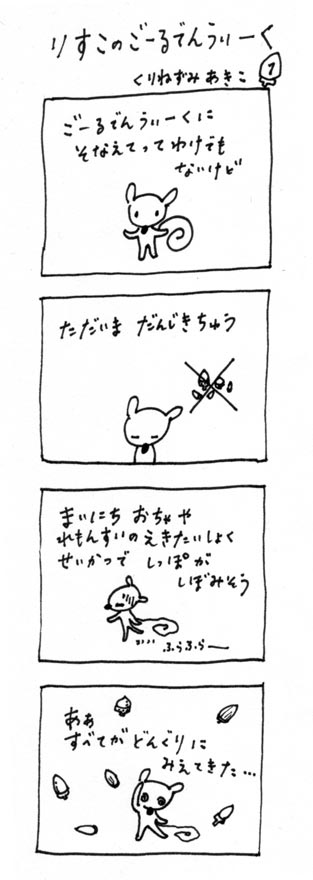 りすこのごーるでんうぃーく
1
くりねずみ あきこ
ごーるでんうぃーくに
そなえてってわけでも
ないけど
ただいま だんじきちゅう
まいにち おちゃや
れもんすいの えきたいしょく
せいかつで しっぽが
しぼみそう
ふらふらー
ああ
すべてが どんぐりに
みえてきた…